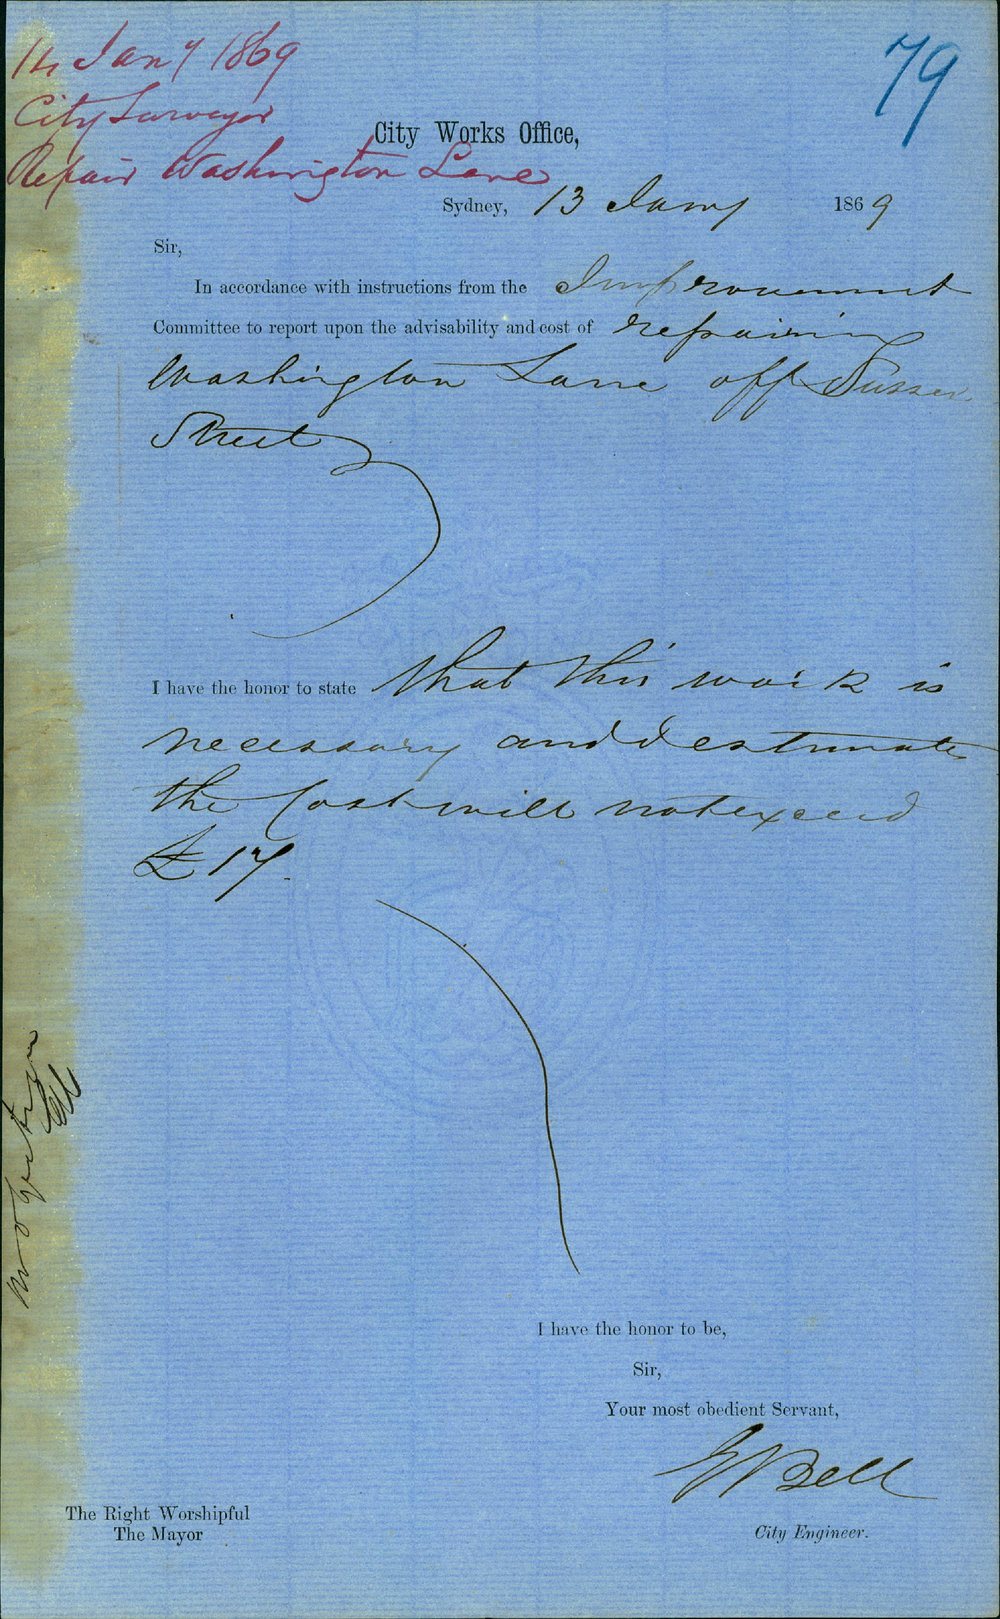 14 Jany 1869
City Surveyor
Repair Washington Lane
79
City Works Office,
Sydney, 13 Jany 1869
Sir,
In accordance with instructions from the Improvement
Committee to report upon the advisability and cost of repairing
Washington Lane off Sussex
Street
I have the honor to state that this work is
necessary and I estimate
the Cost will not exceed
£17.
I have the honor to be,
Sir,
Your most obedient Servant,
E Bell
City Engineer.
The Right Worshipful
The Mayor